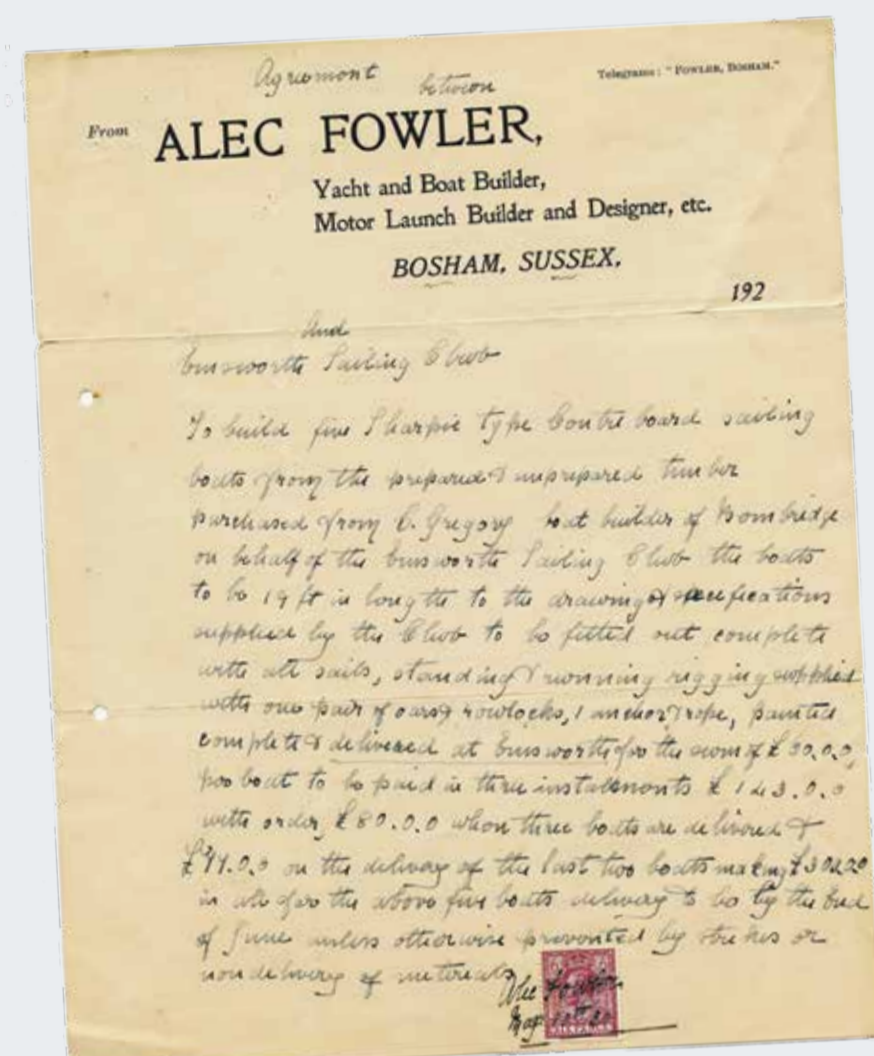 Agreement between
Telegrams: "FOWLER, BOSHAM."
From ALEC FOWLER,
Yacht and Boat Builder,
Motor Launch Builder and Designer, etc.
BOSHAM, SUSSEX,
192
And
Emsworth Sailing Club
To build five Sharpie type Centre board sailing
boats from the prepared & unprepared timber
purchased from C. Gregory boat builder of
on behalf of the Emsworth Sailing Club the boats
to be 19 ft in length to the drawing & specifications
supplied by the Club to be fitted out complete
with all sails, standing & running rigging supplied
with one pair of oars & rowlocks, 1 anchor & rope, painted
complete & delivered at Emsworth for the sum of
per boat to be paid in three instalments
with order, £80.0.0 when three boats are delivered &
on the delivery of the last two boats making
in all for the above five boats delivery to be by the End
of June unless otherwise prevented by strikes or
non delivery of materials
Alec Fowler
SIX PENCE